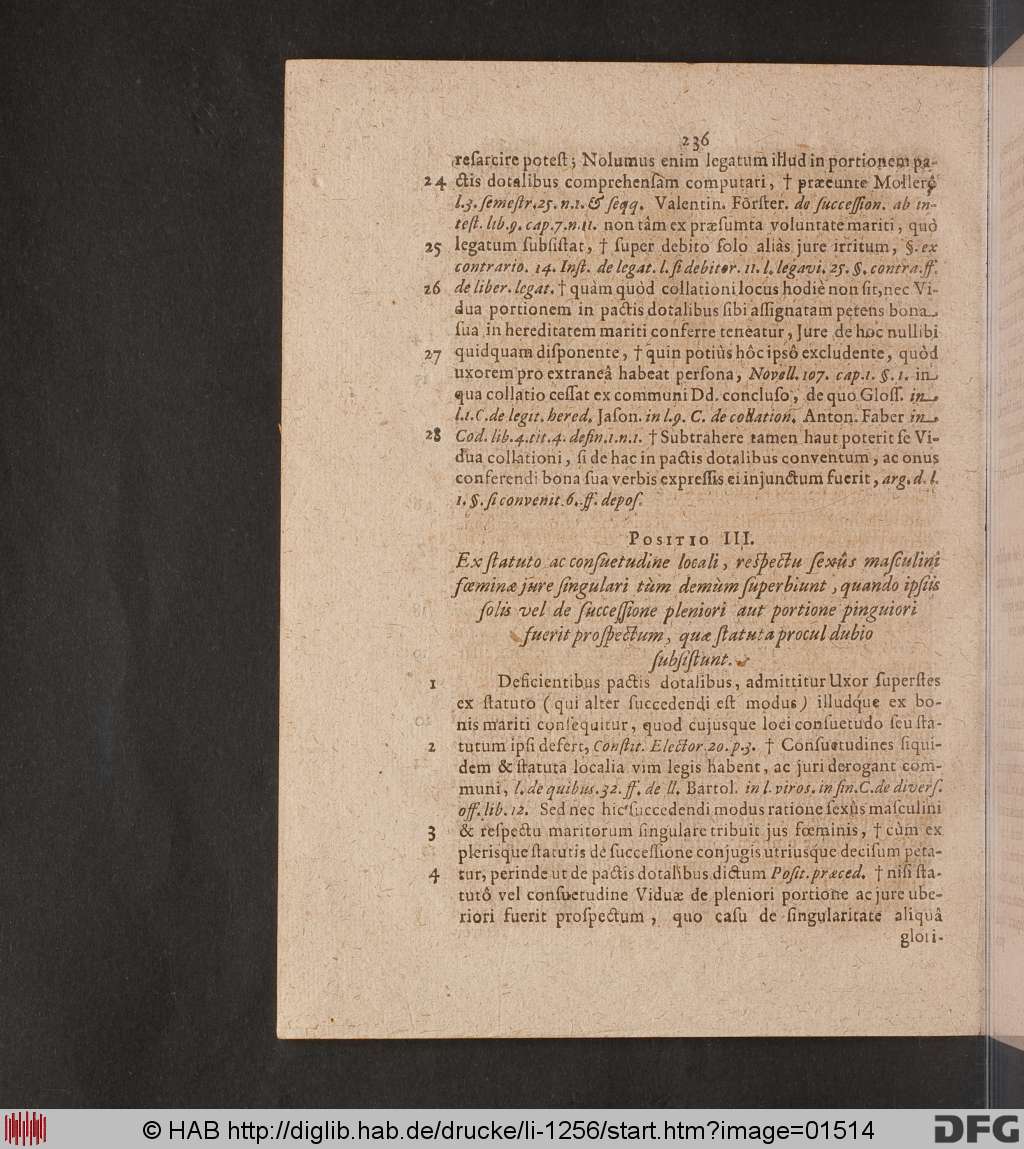 236
reſarcire poteſt; Nolumus enim legatum illud in portionem pa-
24 ctis dotalibus comprehenſam computari, † præeunte Mollerô
l.3. ſemeſtr. 25. n.1. & ſeqq. Valentin. Förſter. de ſucceſſion. ab in-
teſt. lib.9. cap.7. n.11. non tâm ex præſumta voluntate mariti, quò
25 legatum ſubſiſtat, † ſuper debito ſolo aliàs jure irritum, §. ex
contrario. 14. Inſt. de legat. l. ſi debitor. 11. l. legavi. 25. §. contra. ff.
26 de liber. legat. † quàm quòd collationi locus hodiè non ſit, nec Vi-
dua portionem in pactis dotalibus ſibi aſſignatam petens bona
ſua in hereditatem mariti conferre teneatur, Jure de hoc nullibi
27 quidquam diſponente, † quin potiùs hôc ipsô excludente, quòd
uxorem pro extraneâ habeat perſona, Novell. 107. cap.1. §. 1. in
qua collatio ceſſat ex communi Dd. concluſo, de quo Gloſſ. in
l.1. C. de legit. hered. Jaſon. in l.9. C. de collation. Anton. Faber in
28 Cod. lib.4. tit.4. defin.1. n.1. † Subtrahere tamen haut poterit ſe Vi-
dua collationi, ſi de hac in pactis dotalibus conventum, ac onus
conferendi bona ſua verbis expreſſis ei injunctum fuerit, arg. d. l.
1. §. ſi convenit. 6. ff. depoſ.
POSITIO III.
Ex ſtatuto ac conſuetudine locali, reſpectu ſexûs maſculini
fœminæ jure ſingulari tùm demùm ſuperbiunt, quando ipſiis
ſolis vel de ſucceſſione pleniori aut portione pinguiori
fuerit proſpectum, quæ ſtatuta procul dubio
ſubſiſtunt.
1 Deficientibus pactis dotalibus, admittitur Uxor ſuperſtes
ex ſtatuto (qui alter ſuccedendi eſt modus) illudque ex bo-
nis mariti conſequitur, quod cujusque loci conſuetudo ſeu ſta-
2 tutum ipſi defert, Conſtit. Elector. 20. p.3. † Conſuetudines ſiqui-
dem & ſtatuta localia vim legis habent, ac juri derogant com-
muni, l. de quibus. 32. ff. de ll. Bartol. in l. viros. in fin. C. de diverſ.
off. lib. 12. Sed nec hic ſuccedendi modus ratione ſexûs maſculini
3 & reſpectu maritorum ſingulare tribuit jus fœminis, † cùm ex
plerisque ſtatutis de ſucceſſione conjugis utriusque deciſum peta-
4 tur, perinde ut de pactis dotalibus dictum Poſit. præced. † niſi ſta-
tutô vel conſuetudine Viduæ de pleniori portione ac jure ube-
riori fuerit proſpectum, quo caſu de ſingularitate aliquâ
glori-
© HAB http://diglib.hab.de/drucke/li-1256/start.htm?image=01514
DFG